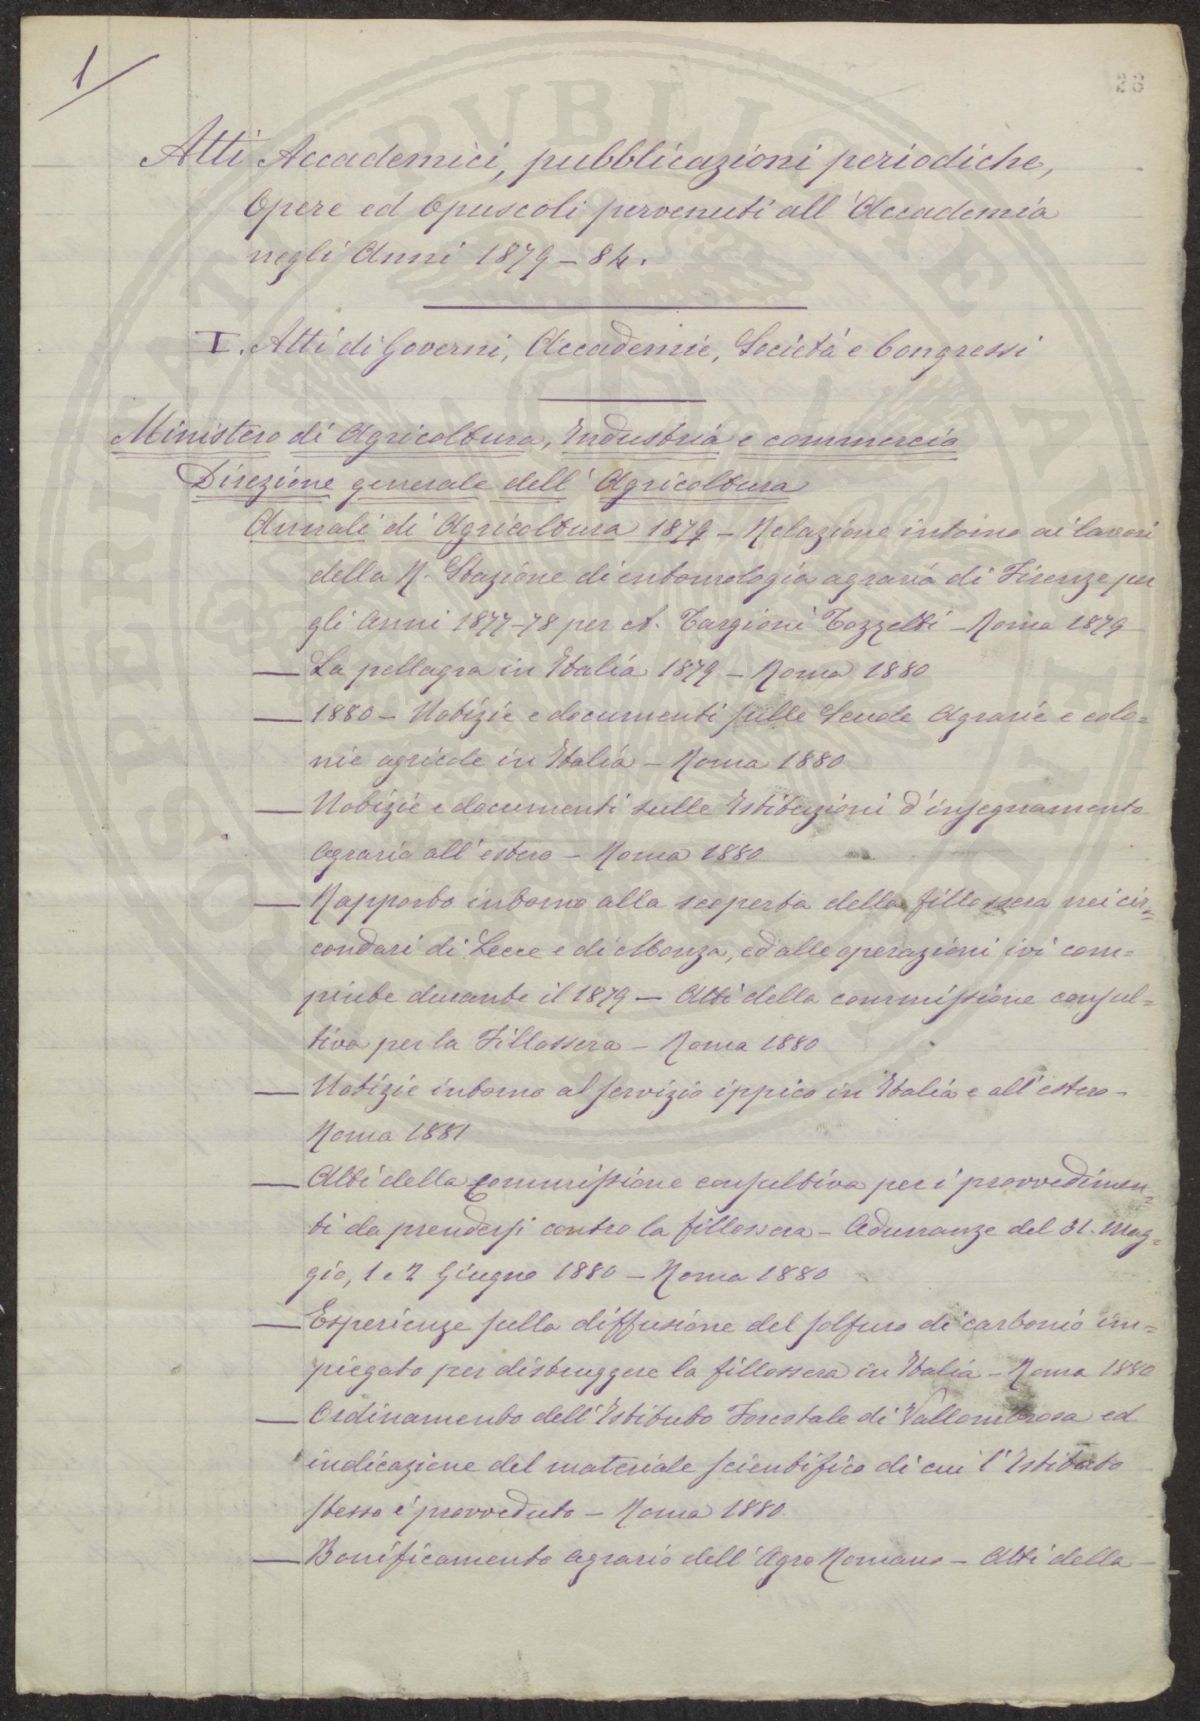 1
28
Atti Accademici, pubblicazioni periodiche,
Opere ed Opuscoli pervenuti all'Accademia
negli Anni 1879-84.
I. Atti di Governi, Accademie, Società e Congressi
Ministero di Agricoltura, Industria e commercio
Direzione generale dell'Agricoltura
Annali di Agricoltura 1879 - Relazione intorno ai lavori
della R. Stazione di entomologia agraria di Firenze per
gli Anni 1877-78 per A. Targioni Tozzetti - Roma 1879
— La pellagra in Italia 1879 - Roma 1880
— 1880 - Notizie e documenti sulle Scuole Agrarie e colo=
nie agricole in Italia - Roma 1880
— Notizie e documenti sulle Istituzioni d'insegnamento
Agrario all'estero - Roma 1880
— Rapporto intorno alla scoperta della fillossera nei cir=
condari di Lecce e di Monza, ed alle operazioni ivi com=
piute durante il 1879 - Atti della commissione consul=
tiva per la Fillossera - Roma 1880
— Notizie intorno al servizio ippico in Italia e all'estero -
Roma 1881
— Atti della Commissione consultiva per i provvedimen=
ti da prendersi contro la fillossera - Adunanze del 31. Mag=
gio, 1 e 2 Giugno 1880 - Roma 1880
— Esperienze sulla diffusione del solfuro di carbonio im=
piegato per distruggere la fillossera in Italia - Roma 1880
— Ordinamento dell'Istituto Forestale di Vallombrosa ed
indicazione del materiale scientifico di cui l'Istituto
stesso è provveduto - Roma 1880
— Bonificamento agrario dell'Agro Romano - Atti della